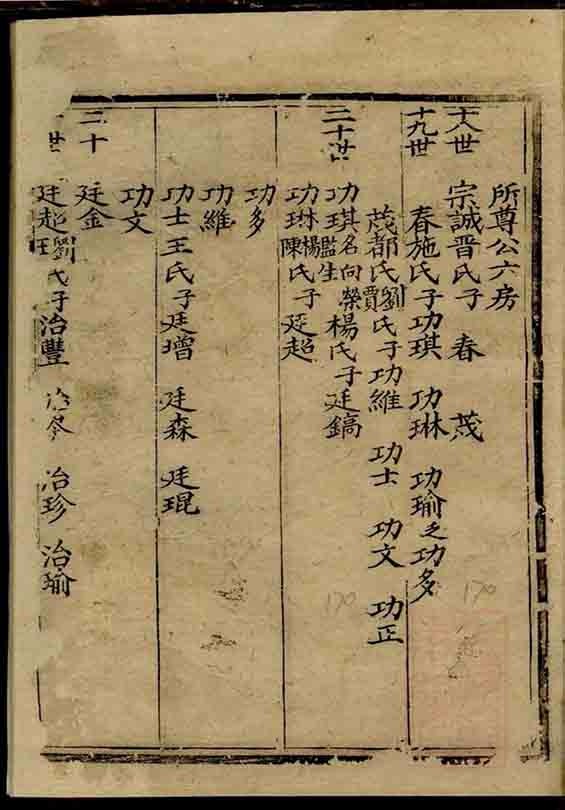 所尊公六房
十八世 宗誠晋氏子 春 茂
十九世 春施氏子功琪 功琳 功瑜之功多
茂都氏劉賈氏子功維 功士 功文 功正
二十世 功琪名向榮監生楊氏子廷鎬
功琳楊陳氏子 廷超
功多
功維
功士王氏子廷增 廷森 廷琨
功文
二十 廷金
世 廷超劉氏子治豐 治珍 治瑜
170
170